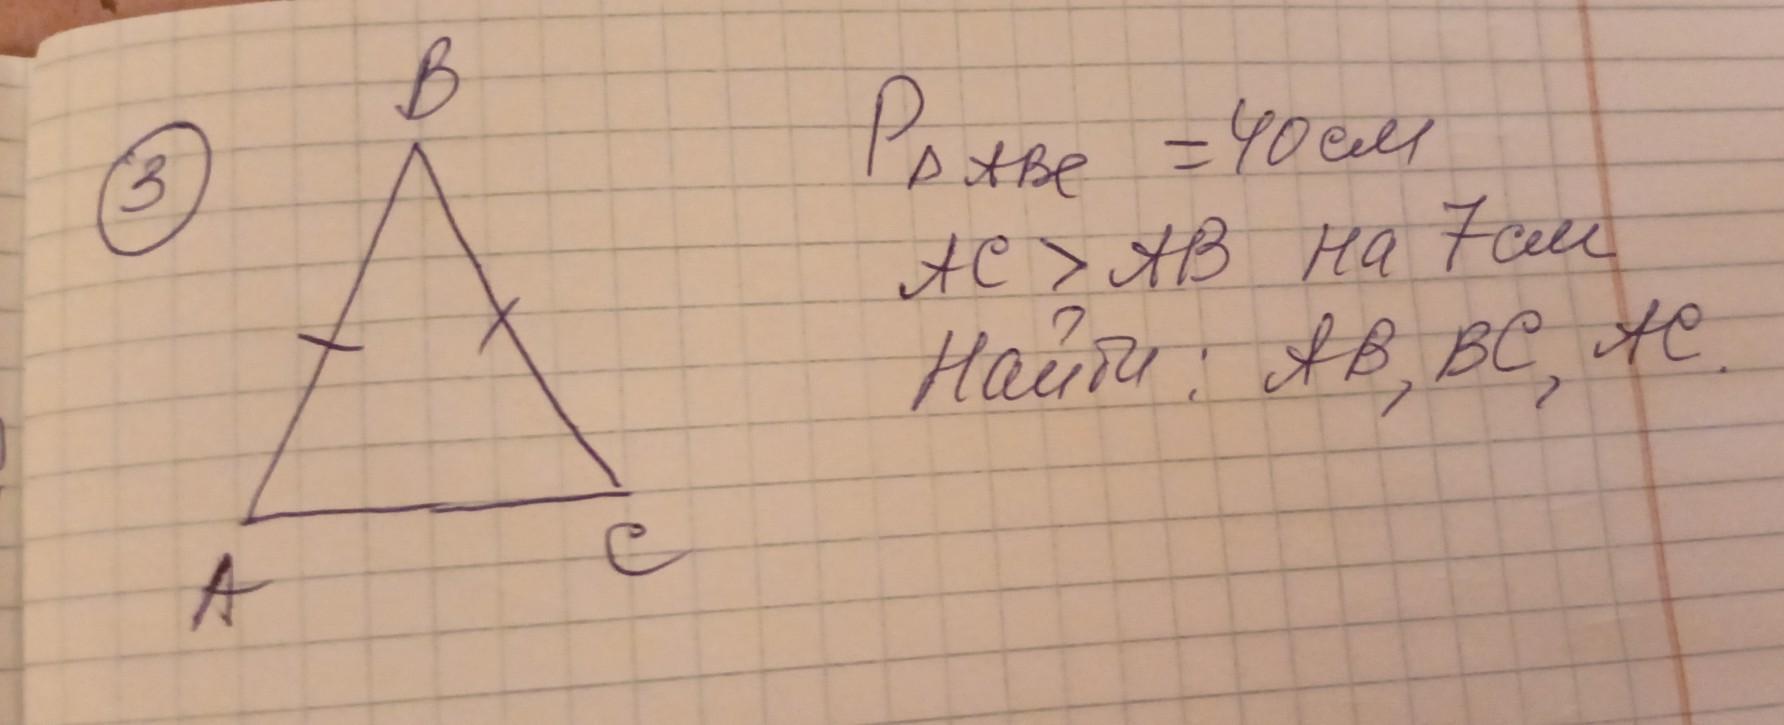 3
B
A
C
P△ABC = 40 см
AC > AB на 7 см
Найти: AB, BC, AC.